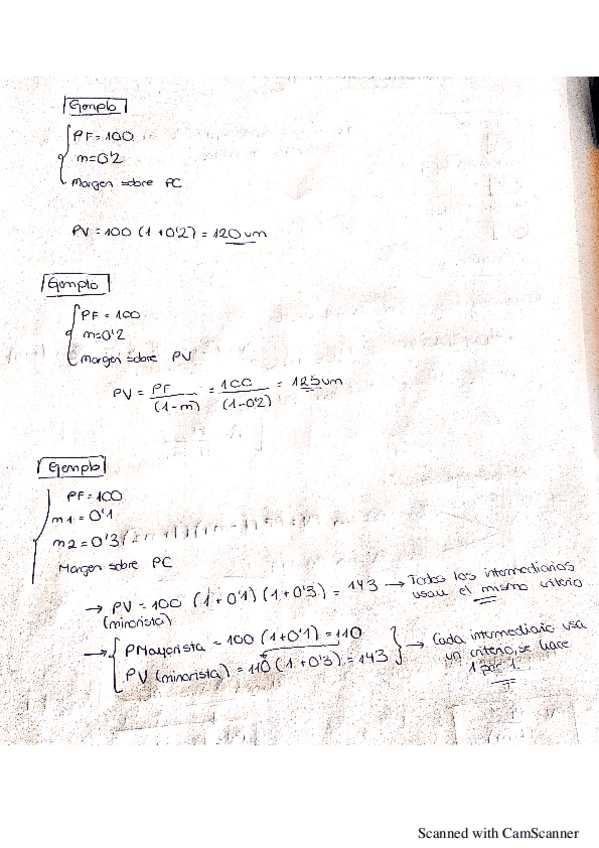 Ejemplo
PF = 100
m = 0'2
Margen sobre PC
PV = 100 (1 + 0'2) = 120 um
Ejemplo
PF = 100
m = 0'2
Margen sobre PV
PV = PF / (1-m) = 100 / (1-0'2) = 125 um
Ejemplo
PF = 100
m1 = 0'1
m2 = 0'3
Margen sobre PC
→ PV = 100 (1+0'1) (1+0'3) = 143 → Todos los intermediarios
(minorista) usan el mismo criterio
→ PMayorista = 100 (1+0'1) = 110 → Cada intermediario usa
PV (minorista) = 110 (1+0'3) = 143 un criterio, se hace
1 por 1.
Scanned with CamScanner